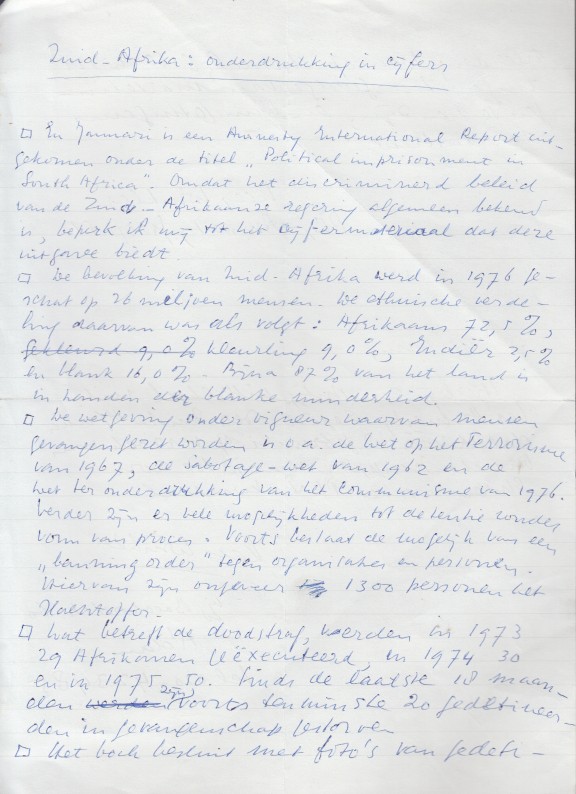 Zuid-Afrika: onderdrukking in cijfers
□ In Januari is een Amnesty International Report uit-
gekomen onder de titel „Political imprisonment in
South Africa". Omdat het discriminerend beleid
van de Zuid-Afrikaanse regering algemeen bekend
is, beperk ik mij tot het cijfermateriaal dat deze
uitgave biedt.
□ De bevolking van Zuid-Afrika werd in 1976 ge-
schat op 26 miljoen mensen. De ethnische verde-
ling daarvan was als volgt: Afrikaans 72,5%,
gekleurd 9,0% kleurling 9,0%, Indiër 2,5%
en blank 16,0%. Bijna 87% van het land is
in handen der blanke minderheid.
□ De wetgeving onder vigneur waarvan mensen
gevangen gezet worden is o.a. de wet op het Terrorisme
van 1967, de sabotage-wet van 1962 en de
wet ter onderdrukking van het Communisme van 1976.
Verder zijn er vele mogelijkheden tot detentie zonder
vorm van proces. Voorts bestaat de mogelijk van een
„banning order" tegen organisaties en personen.
Hiervan zijn ongeveer 1300 personen het
slachtoffer.
□ Wat betreft de doodstraf, werden in 1973
29 Afrikanen geëxecuteerd, in 1974 30
en in 1975 50. Sinds de laatste 18 maan-
den werden zijn voorts tenminste 20 gedetineer-
den in gevangenschap gestorven
□ Het boek besluit met foto's van gedeti-